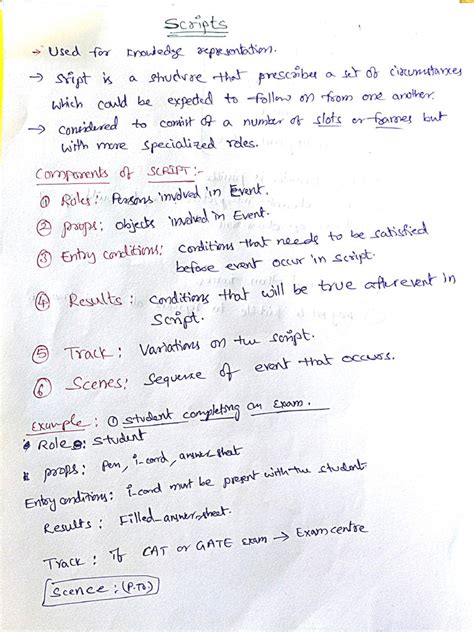 Scripts
→ Used for knowledge representation.
→ Sript is a structure that prescribes a set of circumstances
which could be expected to follow on from one another.
→ Considered to consist of a number of slots or frames but
with more specialized roles.
Components of SCRIPT:-
① Roles: Persons involved in Event.
② props: objects involved in Event.
③ Entry conditions: Conditions that needs to be satisfied
before event occur in script.
④ Results: Conditions that will be true after event in
Script.
⑤ Track: Variations on the script.
⑥ Scenes: Sequence of event that occurs.
Example: ① Student completing an Exam.
Role: Student
props: Pen, i-card, answer sheet
Entry conditions: i-card must be present with the student
Results: Filled answer sheet.
Track: if CAT or GATE exam → Exam centre
Scence: (P.T.O)